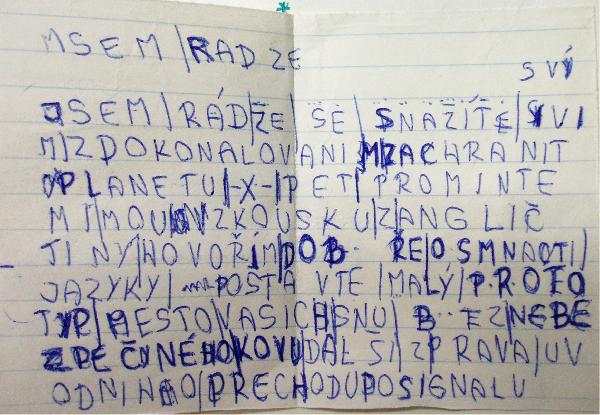 MSEM/RAD ZE
SVÝ
JSEM/RÁD/ŽE/SE/SNAŽÍTE/SVI
M/ZDOKONALOVANI/M/ZACHRANIT
PLANETU/-X-/PET/PROMINTE
MI/MOU/ZKOUSKU/ZANGLIČ
TINY/HOVOŘÍM/DOB ŘE/OSMNACTI/
JAZYKY/POSTAVTE/MALÝ/PROTO
TYP/MESTO/VASICH/SNU/B EZ/NEBE
ZPEČNÉHO/KOVU/DALŠI/ZPRAVA/UV
ODNIHO/PRECHODU/POSIGNALU